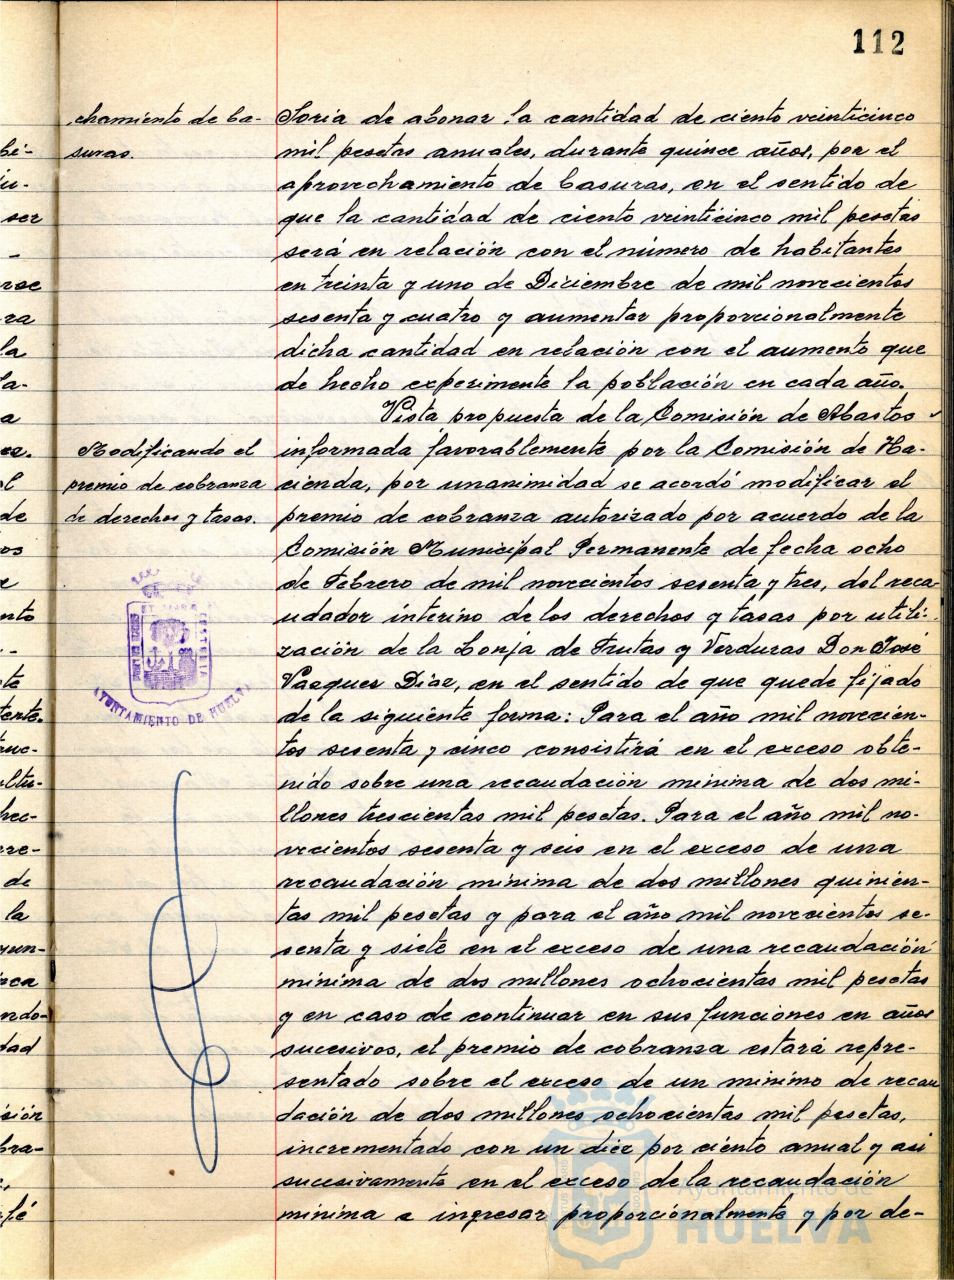 112
chamiento de ba-
suras.
Soria de abonar la cantidad de ciento veinticinco
mil pesetas anuales, durante quince años, por el
aprovechamiento de basuras, en el sentido de
que la cantidad de ciento veinticinco mil pesetas
será en relación con el número de habitantes
en treinta y uno de Diciembre de mil novecientos
sesenta y cuatro y aumentar proporcionalmente
dicha cantidad en relación con el aumento que
de hecho experimente la población en cada año.
Modificando el
premio de cobranza
de derechos y tasas.
Vista propuesta de la Comisión de Abastos
informada favorablemente por la Comisión de Ha-
cienda, por unanimidad se acordó modificar el
premio de cobranza autorizado por acuerdo de la
Comisión Municipal Permanente de fecha ocho
de Febrero de mil novecientos sesenta y tres, del reca-
udador interino de los derechos y tasas por utili-
zación de la Lonja de Frutas y Verduras Don José
Vazquez Diaz, en el sentido de que quede fijado
de la siguiente forma: Para el año mil novecien-
tos sesenta y cinco consistirá en el exceso obte-
nido sobre una recaudación minima de dos mi-
llones trescientas mil pesetas. Para el año mil no-
vecientos sesenta y seis en el exceso de una
recaudación minima de dos millones quinien-
tas mil pesetas y para el año mil novecientos se-
senta y siete en el exceso de una recaudación
minima de dos millones ochocientas mil pesetas
y en caso de continuar en sus funciones en años
sucesivos, el premio de cobranza estará repre-
sentado sobre el exceso de un minimo de recau
dación de dos millones ochocientas mil pesetas,
incrementado con un diez por ciento anual y asi
sucesivamente en el exceso de la recaudación
minima a ingresar proporcionalmente y por de-
AYUNTAMIENTO DE HUELVA
Ayuntamiento de
HUELVA